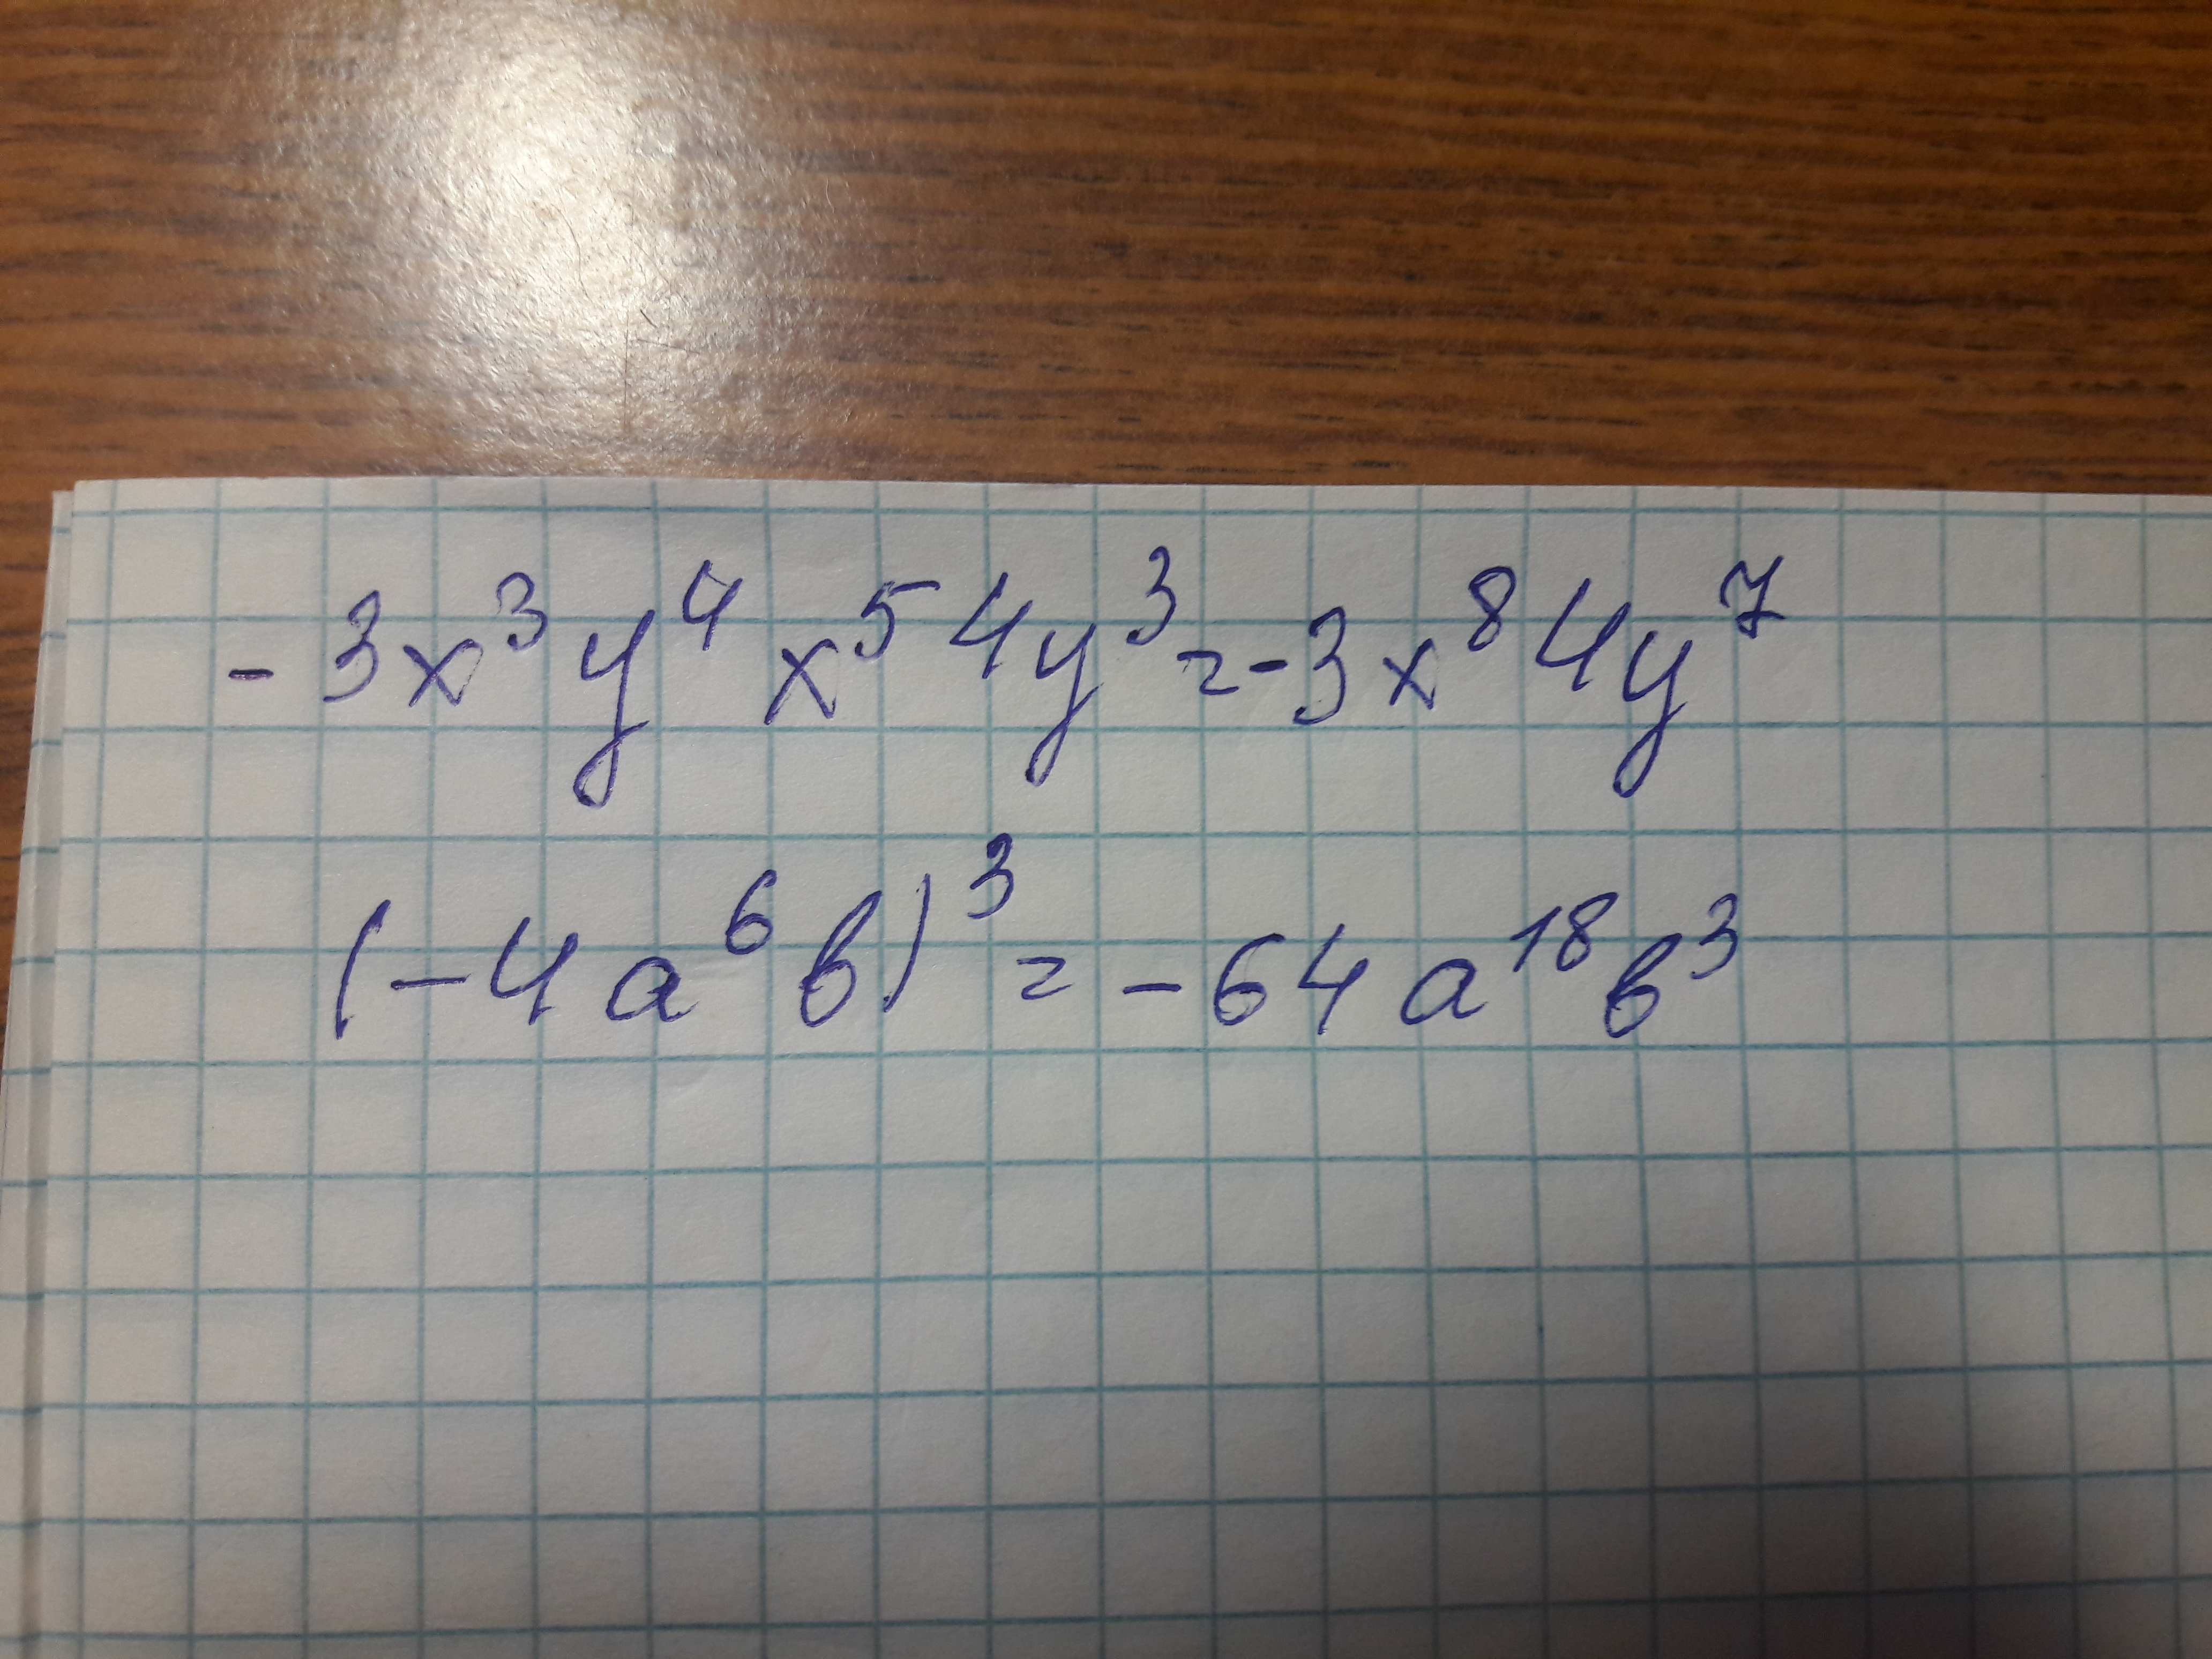 -3x³y⁴x⁵4y³=-3x⁸4y⁷
(-4a⁶b)³=-64a¹⁸b³